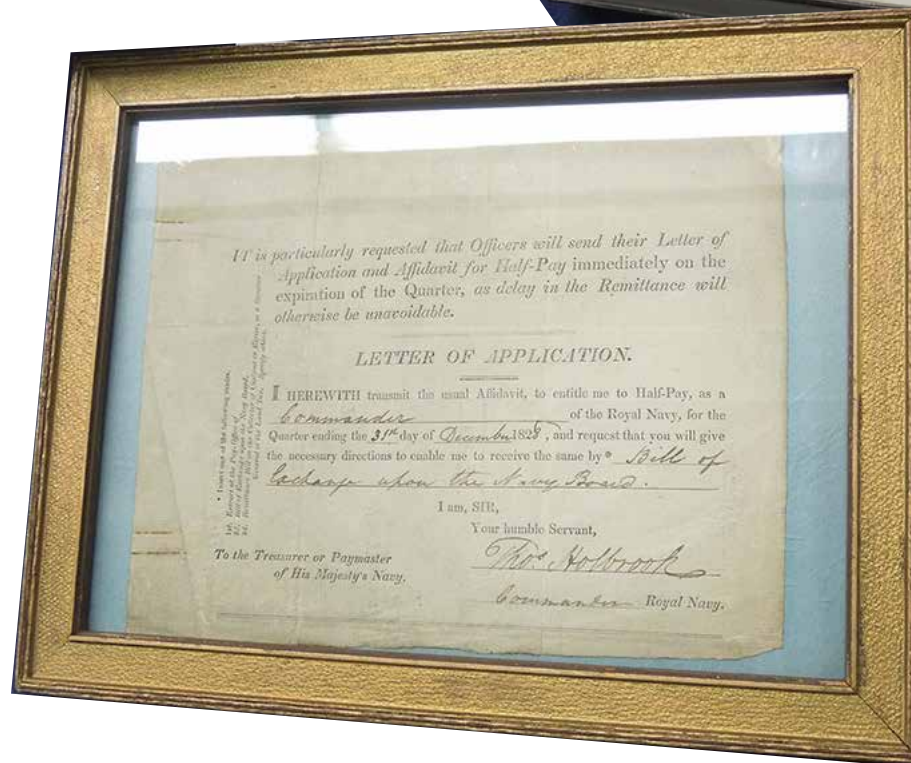 IT is particularly requested that Officers will send their Letter of
Application and Affidavit for Half-Pay immediately on the
expiration of the Quarter, as delay in the Remittance will
otherwise be unavoidable.
LETTER OF APPLICATION.
I HEREWITH transmit the usual Affidavit, to entitle me to Half-Pay, as a
Commander of the Royal Navy, for the
Quarter ending the 31st day of December 1828, and request that you will give
the necessary directions to enable me to receive the same by* Bill of
Exchange upon the Navy Board.
I am, SIR,
Your humble Servant,
Thos. Holbrook
Commander Royal Navy.
To the Treasurer or Paymaster
of His Majesty's Navy.
* Insert one of the following modes.
1st. Extract at the Pay-Office.
2d. Bill of Exchange upon the Navy Board.
3d. Remittance Bill on the Collector of Customs or Excise, or a Receiver
General of the Land Tax,